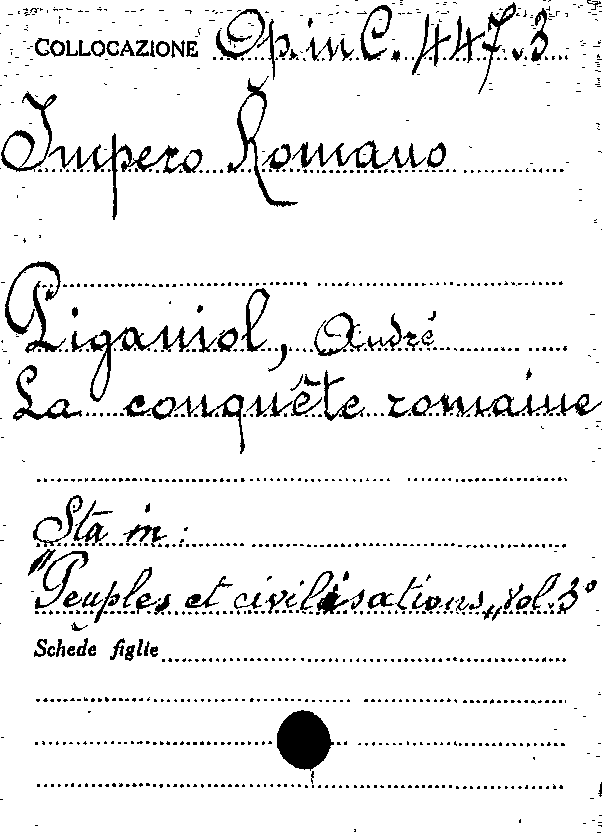 COLLOCAZIONE Op. in C. 447.3
Impero Romano
Piganiol, André
La conquête romaine
Sta in:
"Peuples et civilisations„ vol. 3°
Schede figlie